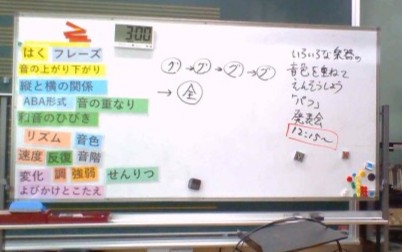 3:00
はく フレーズ
音の上がり下がり
縦と横の関係
ABA形式 音の重なり
和音のひびき
リズム 音色
速度 反復 音階
変化 調 強弱 せんりつ
よびかけとこたえ
グ→グ→グ→グ
→全
いろいろな楽器の
音色を重ねて
えんそうしよう
「パフ」
発表会
12:15〜